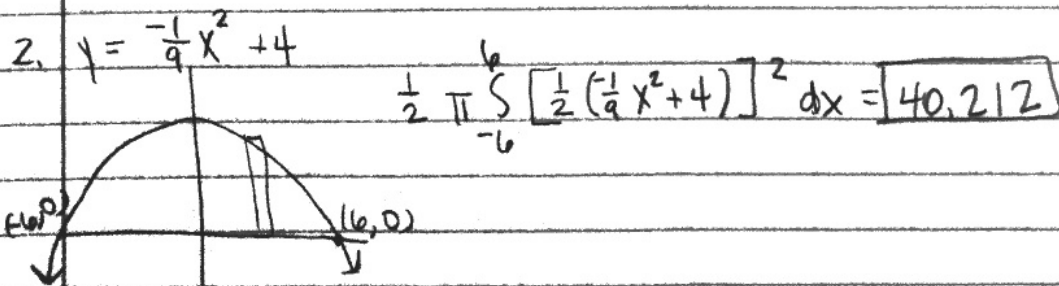 2. y = -1/9 x² + 4
1/2 π ∫₋₆⁶ [1/2 (-1/9 x² + 4)]² dx = 40.212
(-6,0) (6,0)